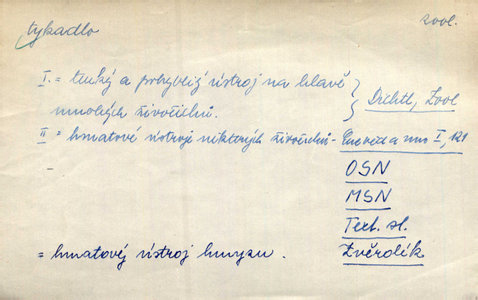 tykadlo zool.
I. = tenký a pohyblivý ústroj na hlavě
mnohých živočichů. } Dichtl, Zool
II = hmatové ústroje některých živočichů - věd a um I, 121
OSN
MSN
Text. sl.
= hmatový ústroj hmyzu. Zvěrolék